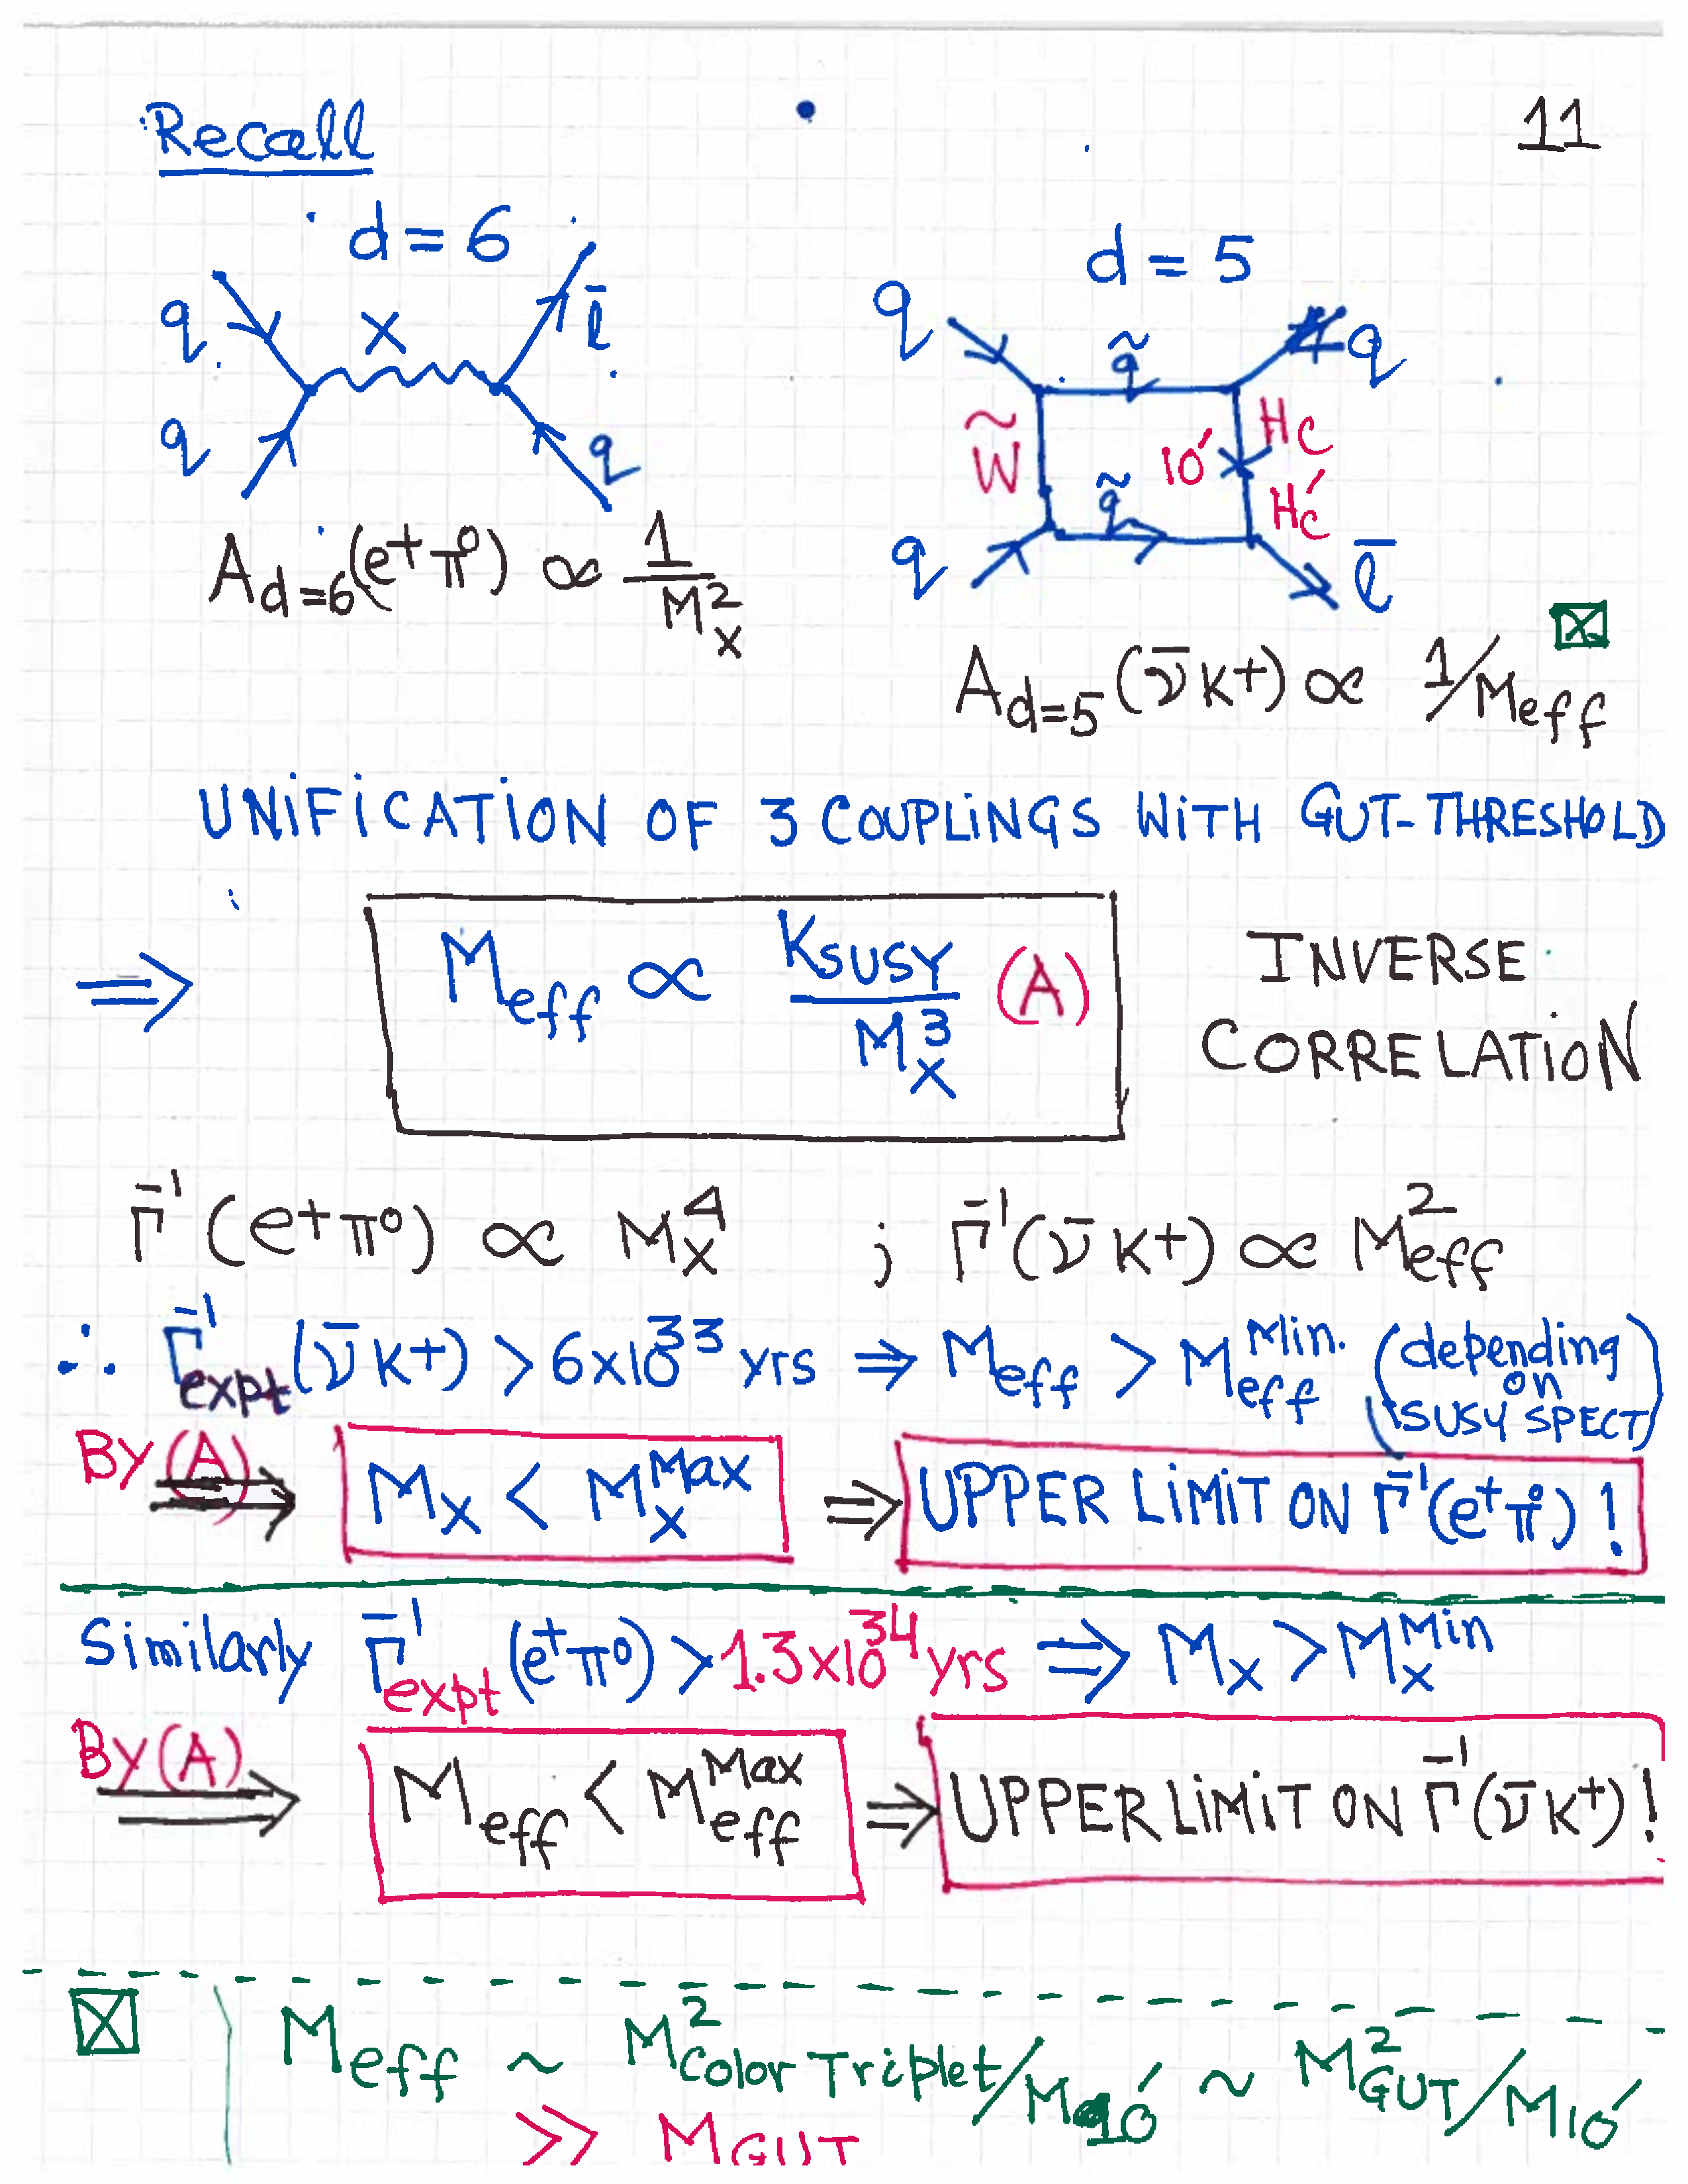 Recall
11
d = 6
q X l̄
q q
A_{d=6}(e⁺π⁰) ∝ 1/M_X²
d = 5
q q̃ q
W̃ 10′ H_C
H′_C
q q̃ l̄
⊠
A_{d=5}(ν̄K⁺) ∝ 1/M_eff
UNIFICATION OF 3 COUPLINGS WITH GUT-THRESHOLD
⇒ M_eff ∝ K_SUSY/M_X³ (A) INVERSE
CORRELATION
Γ⁻¹(e⁺π⁰) ∝ M_X⁴ ; Γ⁻¹(ν̄K⁺) ∝ M²_eff
∴ Γ⁻¹_expt(ν̄K⁺) > 6x10³³ yrs ⇒ M_eff > M_eff^Min. (depending on SUSY SPECT)
By (A) ⇒ M_X < M_X^Max ⇒ UPPER LIMIT ON Γ⁻¹(e⁺π⁰)!
Similarly Γ⁻¹_expt(e⁺π⁰) > 1.3x10³⁴ yrs ⇒ M_X > M_X^Min
By (A) ⇒ M_eff < M_eff^Max ⇒ UPPER LIMIT ON Γ⁻¹(ν̄K⁺)!
⊠ M_eff ~ M²_Color Triplet/M_10′ ~ M²_GUT/M_10′
≫ M_GUT